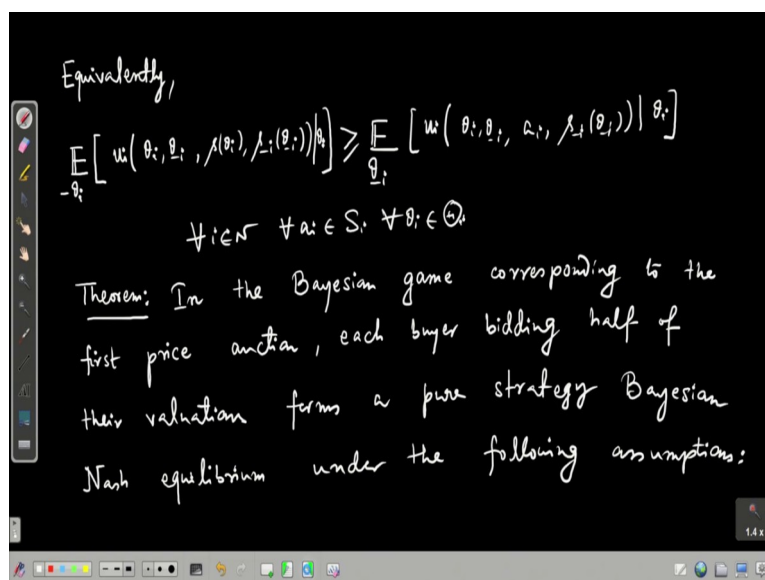 Equivalently,
𝔼_{-θ_i} [ u_i( θ_i, θ_{-i}, s(θ_i), s_{-i}(θ_{-i})) | θ_i ] ≥ 𝔼_{θ_{-i}} [ u_i( θ_i, θ_{-i}, a_i, s_{-i}(θ_{-i})) | θ_i ]
∀ i ∈ N ∀ a_i ∈ S_i ∀ θ_i ∈ Θ_i.
Theorem: In the Bayesian game corresponding to the
first price auction, each buyer bidding half of
their valuation forms a pure strategy Bayesian
Nash equilibrium under the following assumptions:
1.4 x